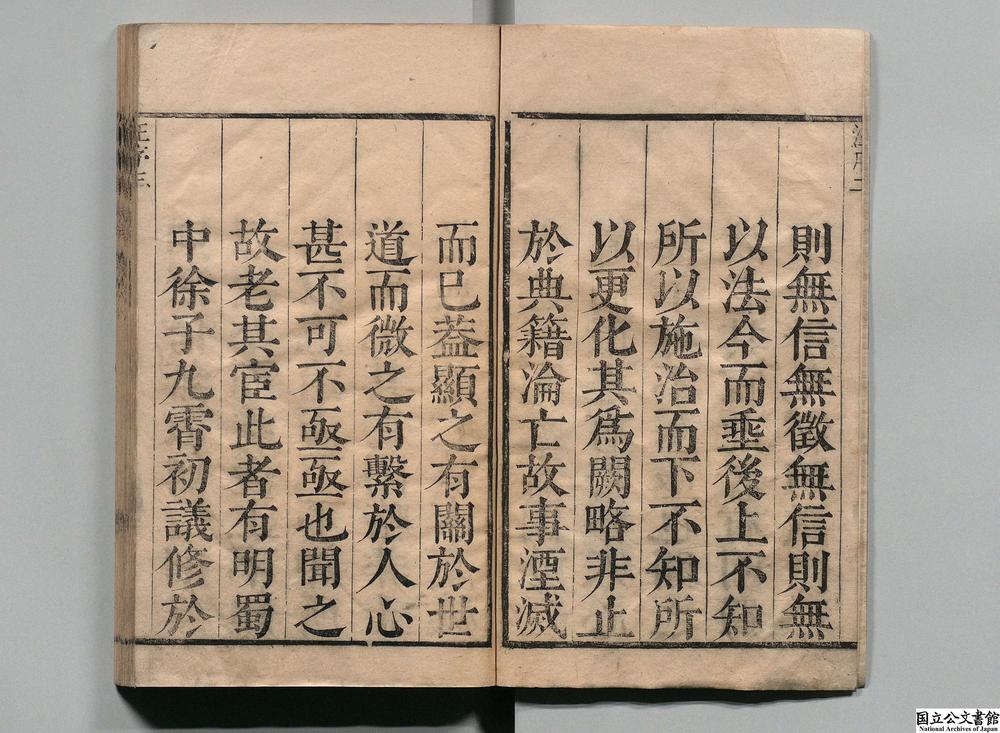 則無信無徵無信則無
以法今而垂後上不知
所以施治而下不知所
以更化其爲闕略非止
於典籍淪亡故事湮滅
而已葢顯之有關於世
道而微之有繫於人心
甚不可不亟亟也聞之
故老其宦此者有明蜀
中徐子九霄初議修於
国立公文書館
National Archives of Japan